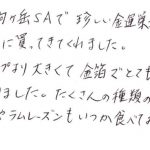 ヶ岳SAで珍しい金運
に買ってきてくれました。
り大きくて金箔でとても
りました。たくさんの種類の
ラムレーズンもいつか食べて